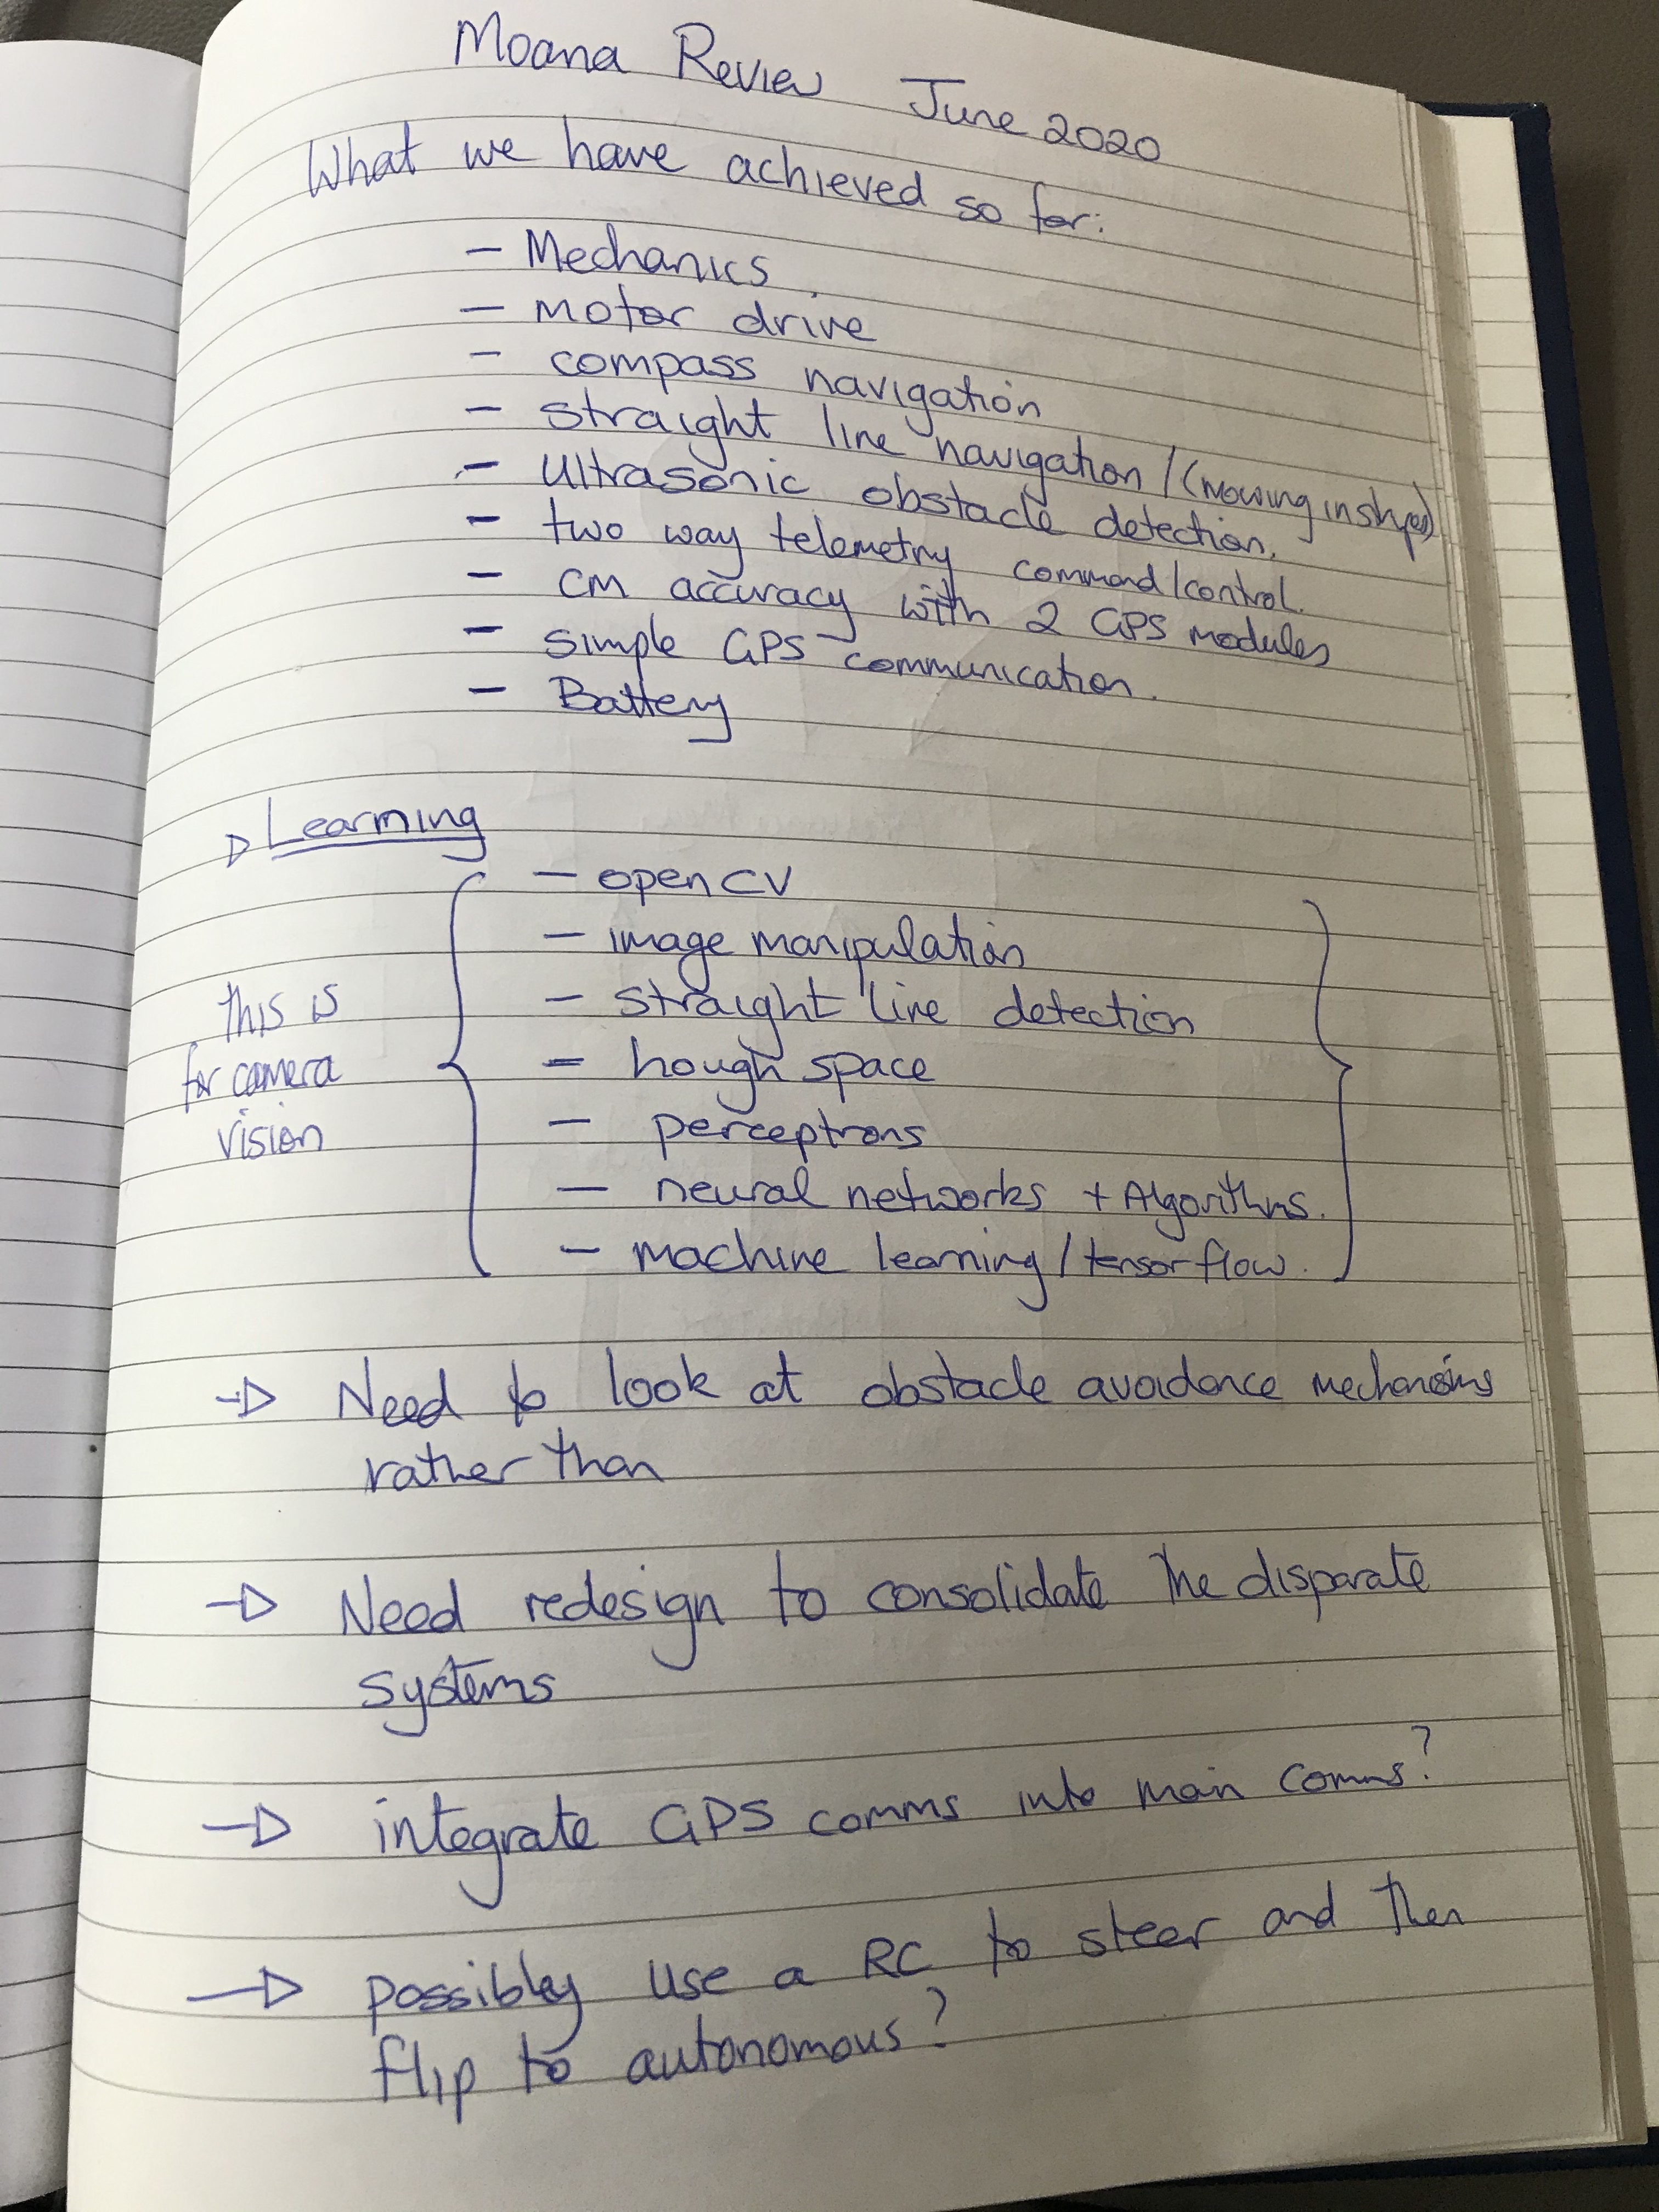 Moana Review June 2020
What we have achieved so far:
- Mechanics
- motor drive
- compass navigation
- straight line navigation / (mowing in stripes)
- Ultrasonic obstacle detection.
- two way telemetry command/control.
- CM accuracy with 2 GPS modules
- simple GPS communication.
- Battery
Learning
- open CV
- image manipulation
- straight line detection
- hough space
- perceptrons
- neural networks + Algorithms.
- machine learning / tensor flow.
this is
for camera
vision
→ Need to look at obstacle avoidance mechanisms
rather than
→ Need redesign to consolidate the disparate
systems
→ integrate GPS comms into main comms?
→ possibly use a RC to steer and then
flip to autonomous?